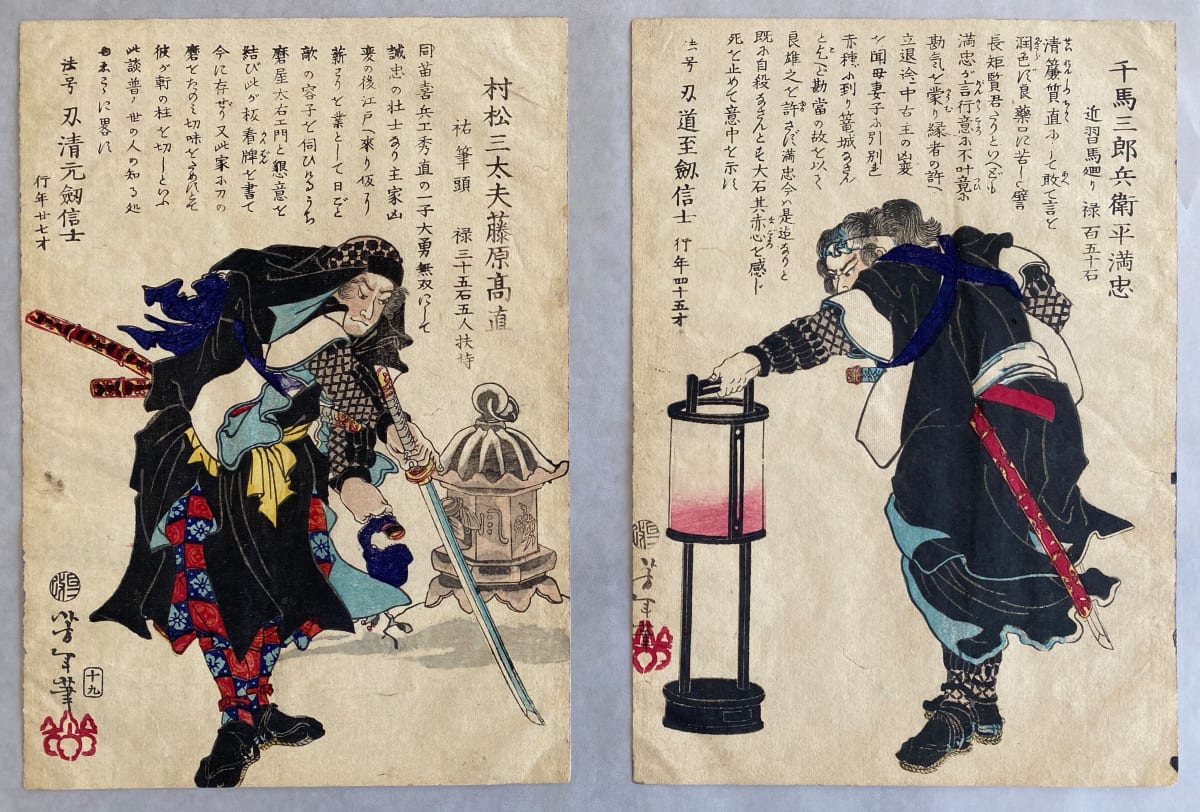 千馬三郎兵衛平満忠
近習馬廻り 禄 百五十石
清簾質直にして敢て言を
潤色せず良藥口に苦しと譬
長矩賢君たりといへども
満忠が言行意に不叶竟に
勘気を蒙り縁者の許へ
立退く途中古主の凶変
を聞母妻子に引別れ
赤穂に到り篭城なさん
といへど勘當の故を以て
良雄之を許さず満忠今は是迄なりと
既に自殺なさんとも大石其赤心を感じ
死を止めて意中を示す
法号 刃道至劔信士 行年四十五才
芳年筆
村松三太夫藤原高直
祐筆頭 禄三十五石五人扶持
同苗喜兵エ秀直の一子大勇無双にして
誠忠の壮士なり主家凶
変の後江戸へ來り仮り
薪うりを業として日ごと
敵の容子を伺ひゐるうち
磨屋太右エ門と懇意を
結び此が板看牌を書て
今に存ぜり又此家に刀の
磨をたのみ切味を
彼が軒の柱を切しといふ
此談普ノ世の人の知る処
ゆゑこゝに畧す
法号 刃清元劔信士
行年廿七才
芳年筆
十九